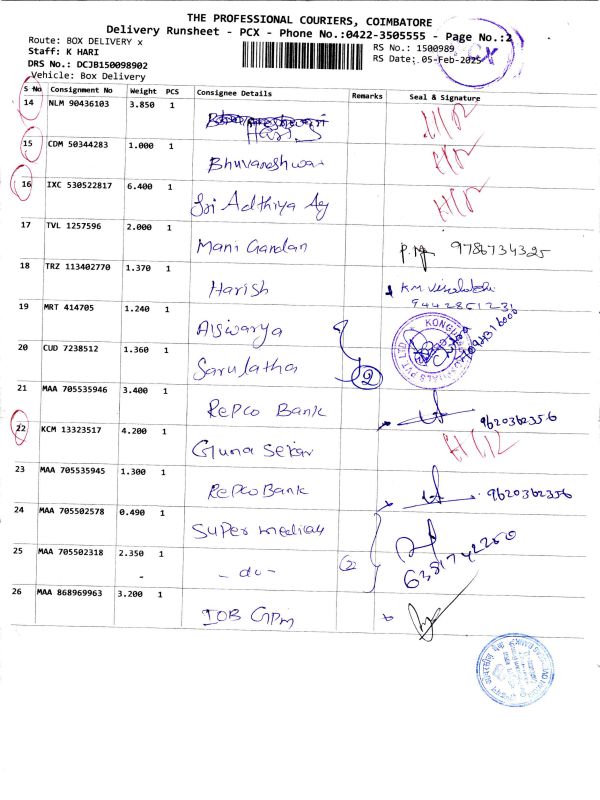 THE PROFESSIONAL COURIERS, COIMBATORE
Delivery Runsheet - PCX - Phone No.:0422-3505555 - Page No.:2
Route: BOX DELIVERY x
RS No.: 1500989
Staff: K HARI
RS Date: 05-Feb-2025
DRS No.: DCJB150098902
Vehicle: Box Delivery
S No Consignment No Weight PCS Consignee Details Remarks Seal & Signature
14 NLM 90436103 3.850 1
Haris
15 CDM 50344283 1.000 1
Bhuvaneshwar
16 IXC 530522817 6.400 1
Sri Adthiya Ag
17 TVL 1257596 2.000 1
Mani Gandan 9786734325
18 TRZ 113402770 1.370 1
Harish
9442851231
19 MRT 414705 1.240 1
Aiswarya
20 CUD 7238512 1.360 1
Sarulatha 2
21 MAA 705535946 3.400 1
Repco Bank 9620362356
22 KCM 13323517 4.200 1
Guna Sekar
23 MAA 705535945 1.300 1
Repco Bank 9620362356
24 MAA 705502578 0.490 1
Super medicals
25 MAA 705502318 2.350 1
- - do - 2 6381742250
26 MAA 868969963 3.200 1
IOB GPm